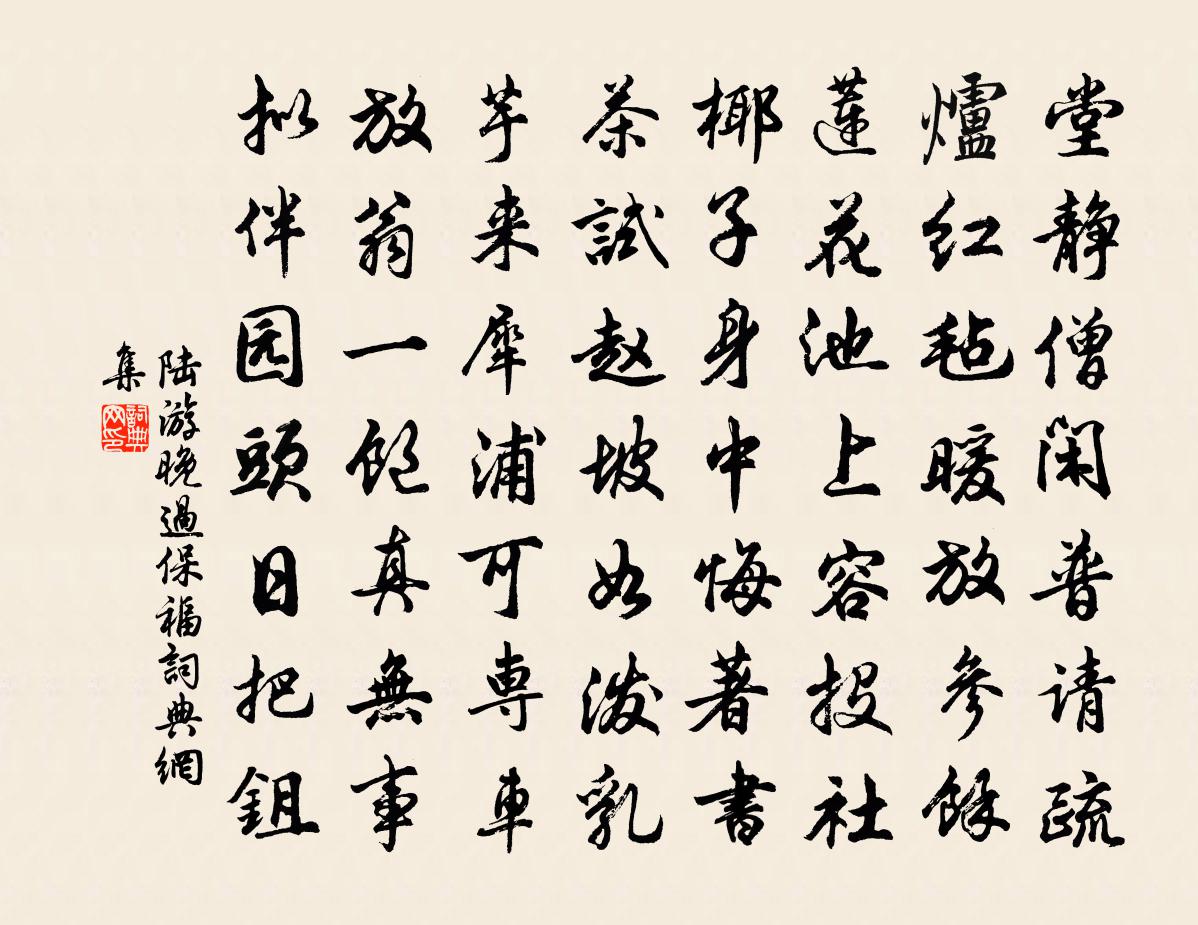 堂静僧闲普请疏
爐红毡暖放参餘
蓮花池上容投社
椰子身中悔著書
茶試赵坡如泼乳
芋来犀浦可専車
放翁一饱真無事
拟伴园頭日把鉏
陆游晚過保福詞典網
集
詞典
网印